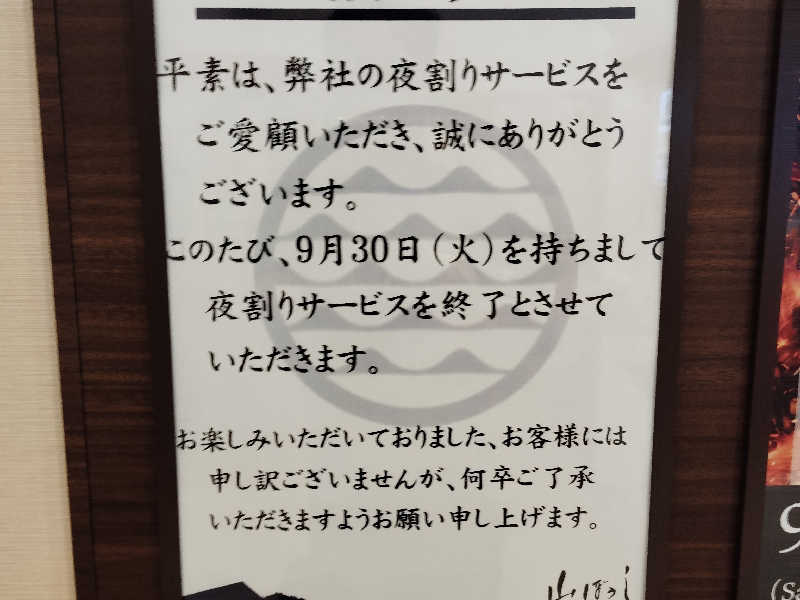 平素は、弊社の夜割りサービスを
ご愛顧いただき、誠にありがとう
ございます。
このたび、9月30日（火）を持ちまして
夜割りサービスを終了とさせて
いただきます。
お楽しみいただいておりました、お客様には
申し訳ございませんが、何卒ご了承
いただきますようお願い申し上げます。
9
(Sa